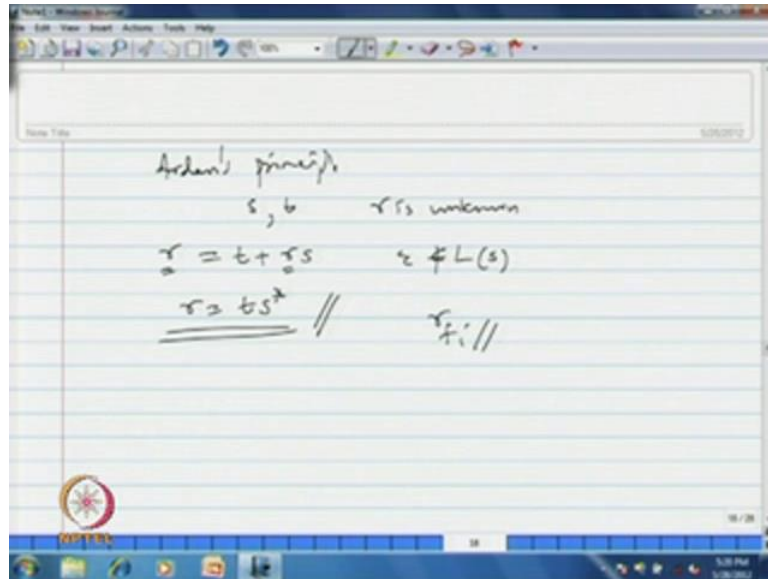 Note1 - Windows Journal
File Edit View Insert Actions Tools Help
Note Title
5/28/2012
Arden's principle
s, t r is unknown
r = t + rs ε ∉ L(s)
r = ts*
r_fi
NPTEL
18/28
18
5:20 PM
5/28/2012